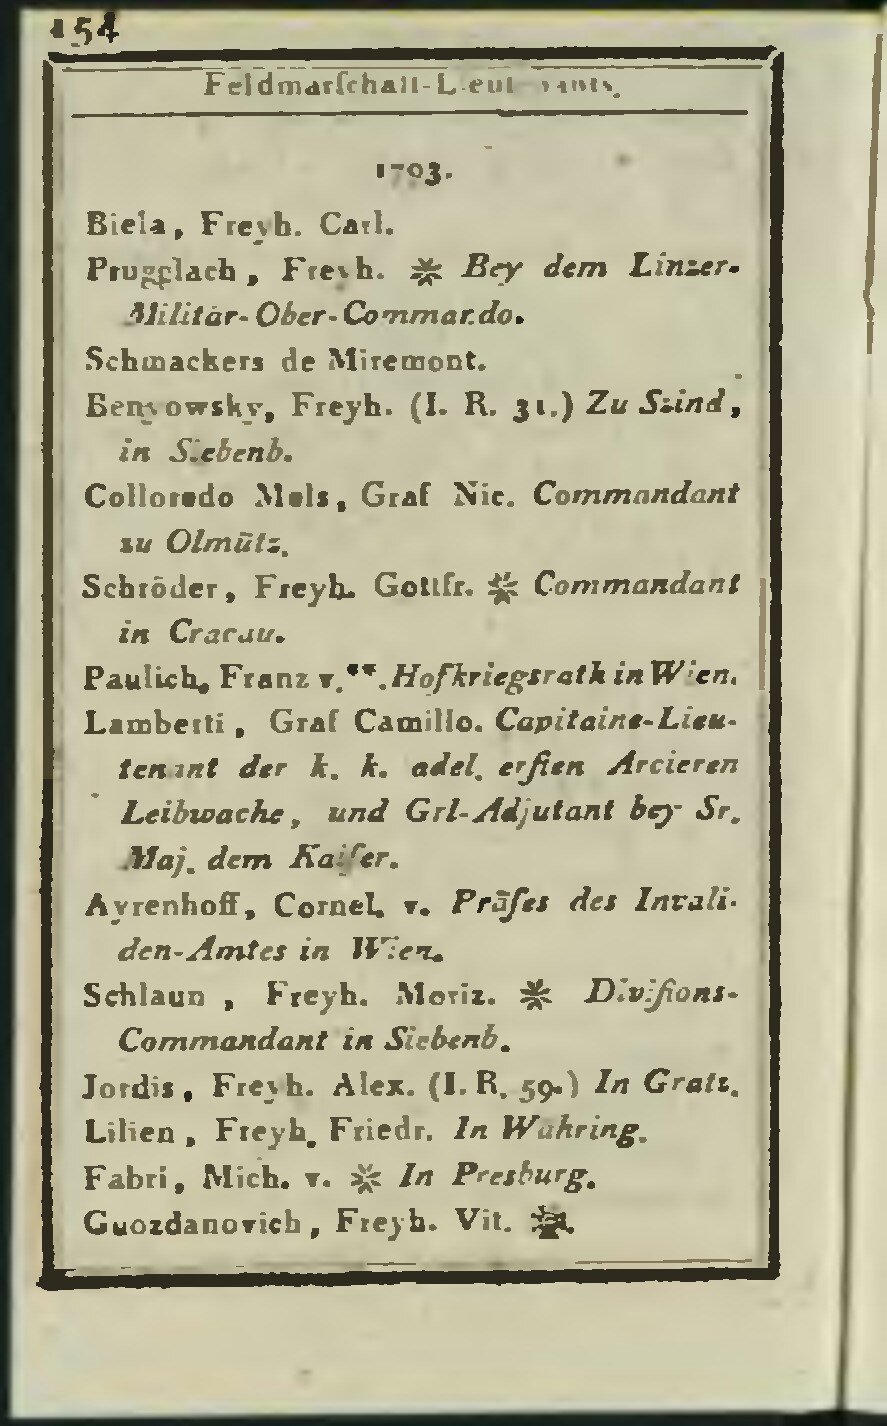 154
Feldmarſchall-Lieutenants.
1793.
Biela, Freyh. Carl.
Prugglach, Freyh. ❋ Bey dem Linzer-
Militär-Ober-Commando.
Schmackers de Miremont.
Benyowsky, Freyh. (I. R. 31.) Zu Szind,
in Siebenb.
Colloredo Mels, Graf Nic. Commandant
zu Olmütz.
Schröder, Freyh. Gottfr. ❋ Commandant
in Cracau.
Paulich, Franz v.**. Hofkriegsrath in Wien.
Lamberti, Graf Camillo. Capitaine-Lieu-
tenant der k. k. adel. erſten Arcieren
Leibwache, und Grl-Adjutant bey Sr.
Maj. dem Kaiſer.
Ayrenhoff, Cornel. v. Präſes des Invali-
den-Amtes in Wien.
Schlaun, Freyh. Moriz. ❋ Diviſions-
Commandant in Siebenb.
Jordis, Freyh. Alex. (I. R. 59.) In Gratz.
Lilien, Freyh. Friedr. In Währing.
Fabri, Mich. v. ❋ In Presburg.
Guozdanovich, Freyh. Vit.